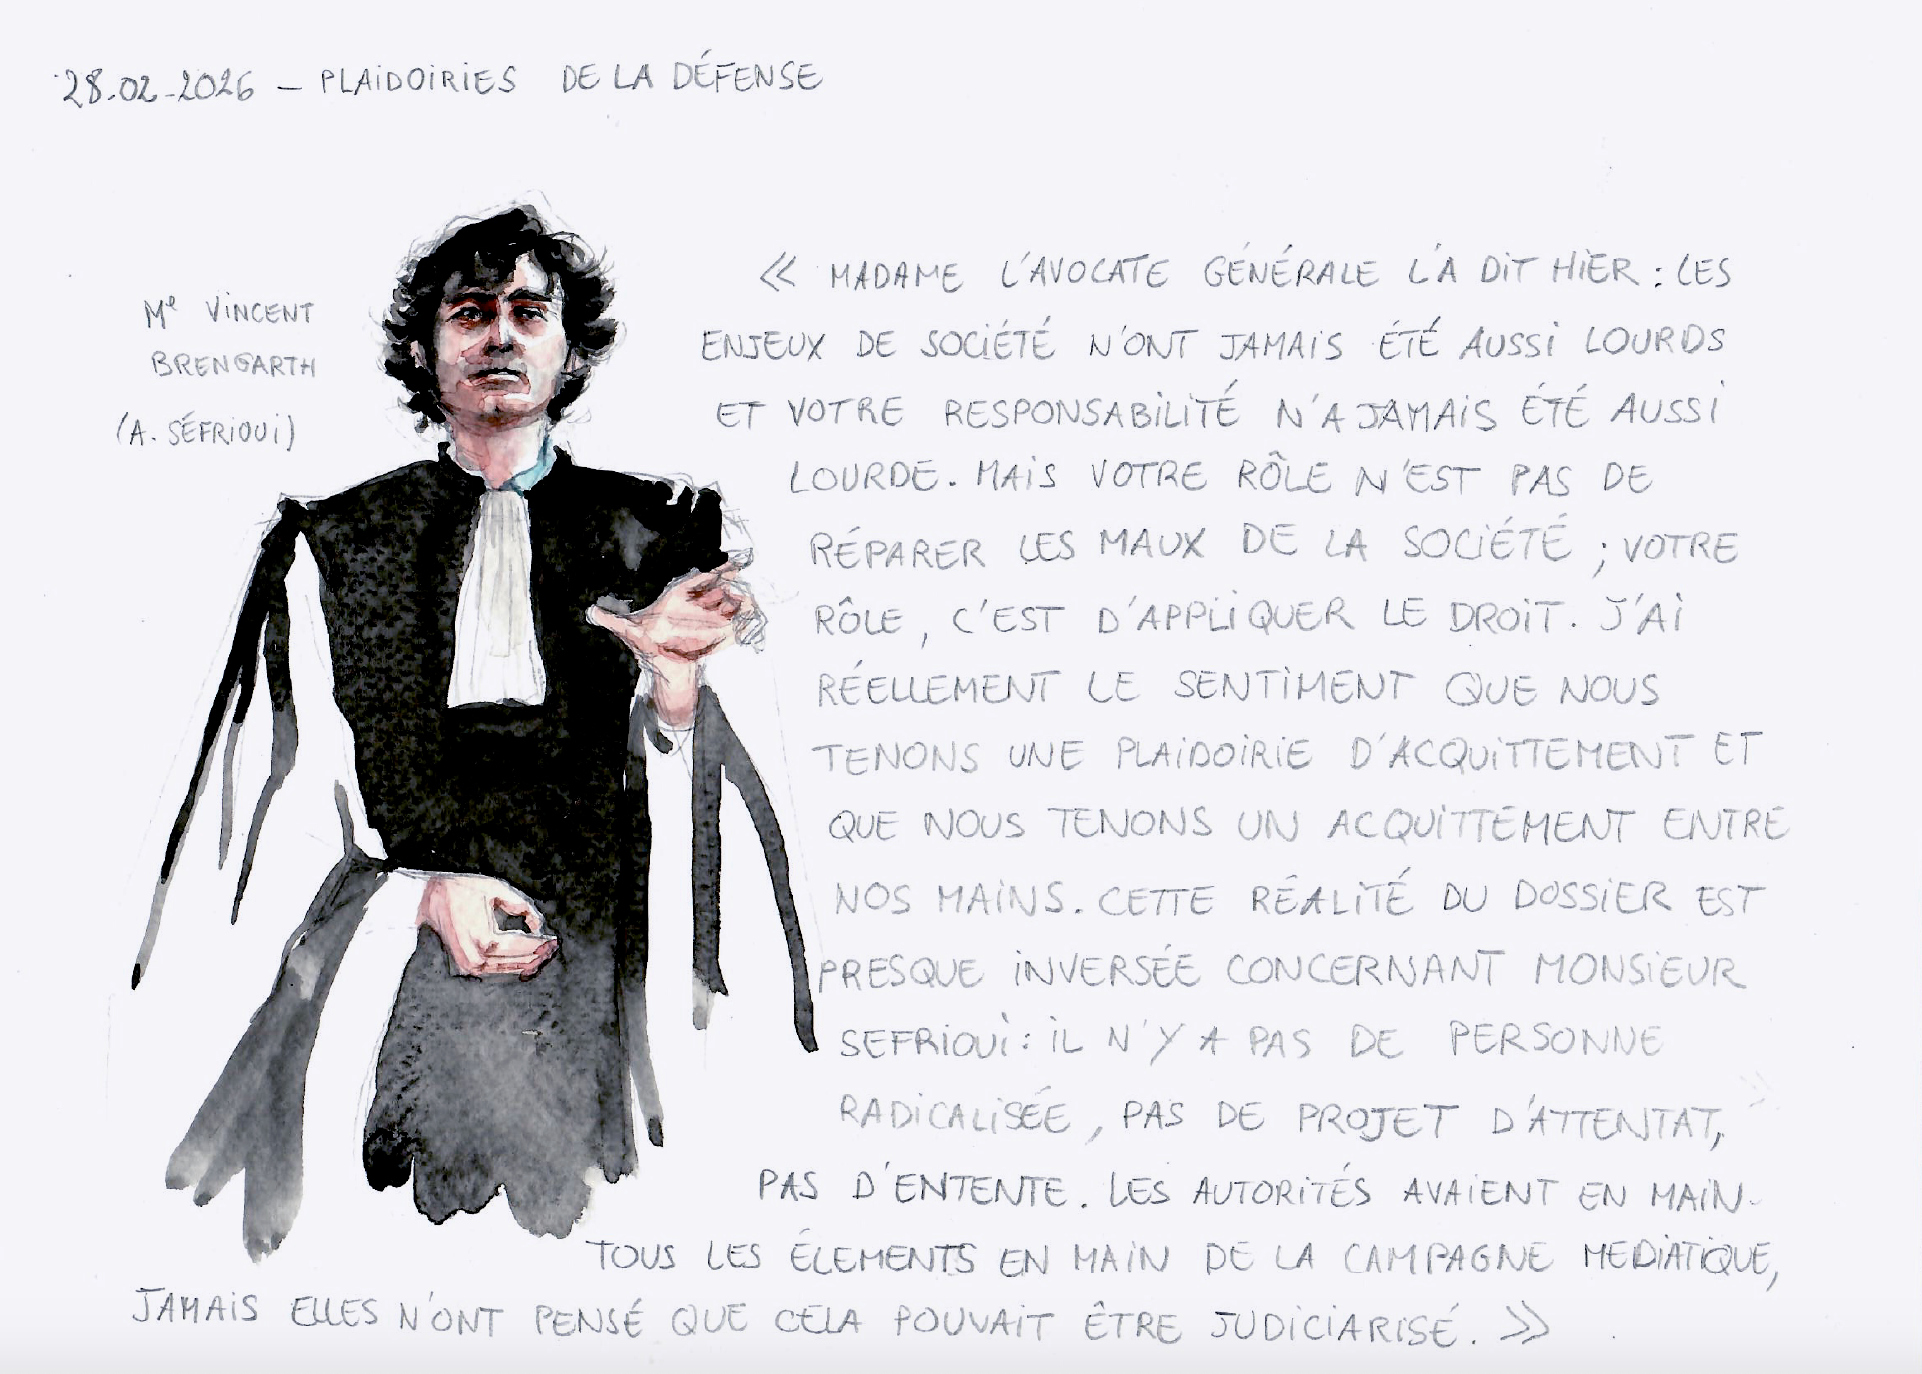 28.02.2026 – PLAIDOIRIES DE LA DÉFENSE
Me VINCENT
BRENGARTH
(A. SÉFRIOUI)
« MADAME L'AVOCATE GÉNÉRALE L'A DIT HIER : LES
ENJEUX DE SOCIÉTÉ N'ONT JAMAIS ÉTÉ AUSSI LOURDS
ET VOTRE RESPONSABILITÉ N'A JAMAIS ÉTÉ AUSSI
LOURDE. MAIS VOTRE RÔLE N'EST PAS DE
RÉPARER LES MAUX DE LA SOCIÉTÉ ; VOTRE
RÔLE, C'EST D'APPLIQUER LE DROIT. J'AI
RÉELLEMENT LE SENTIMENT QUE NOUS
TENONS UNE PLAIDOIRIE D'ACQUITTEMENT ET
QUE NOUS TENONS UN ACQUITTEMENT ENTRE
NOS MAINS. CETTE RÉALITÉ DU DOSSIER EST
PRESQUE INVERSÉE CONCERNANT MONSIEUR
SEFRIOUI : IL N'Y A PAS DE PERSONNE
RADICALISÉE, PAS DE PROJET D'ATTENTAT,
PAS D'ENTENTE. LES AUTORITÉS AVAIENT EN MAIN
TOUS LES ÉLEMENTS EN MAIN DE LA CAMPAGNE MEDIATIQUE,
JAMAIS ELLES N'ONT PENSÉ QUE CELA POUVAIT ÊTRE JUDICIARISÉ. »